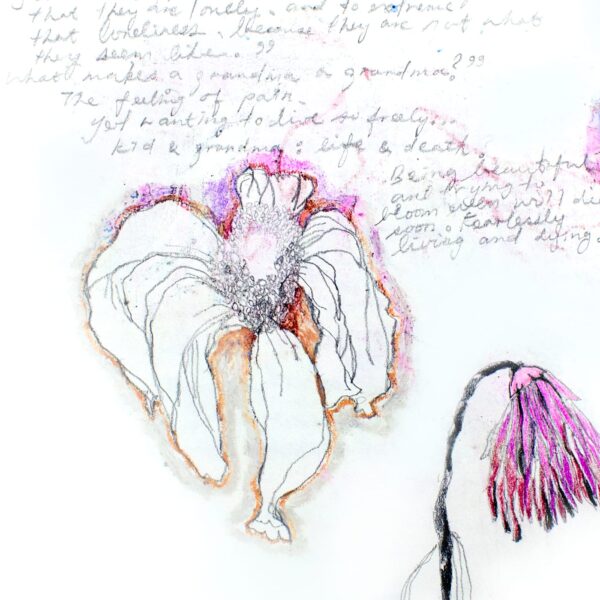 that they are lonely. and to extreme?
that loneliness, because they are not what
they seem like."
what makes a grandma a grandma?"
The feeling of pain.
yet wanting to live so freely...
kid & grandma : life & death.
Being beautiful
and trying to
bloom even will die
soon. Fearlessly
living and dying.